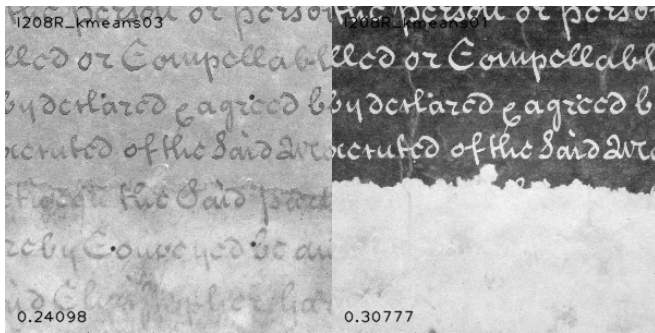 l208R_kmeans03
or person
lled or Compellabl
by declared & agreed b
ecuted of the Said
the Said part
reby Conveyed be an
0.24098
l208R_kmeans01
or person
lled or Compellabl
by declared & agreed b
ecuted of the Said
0.30777